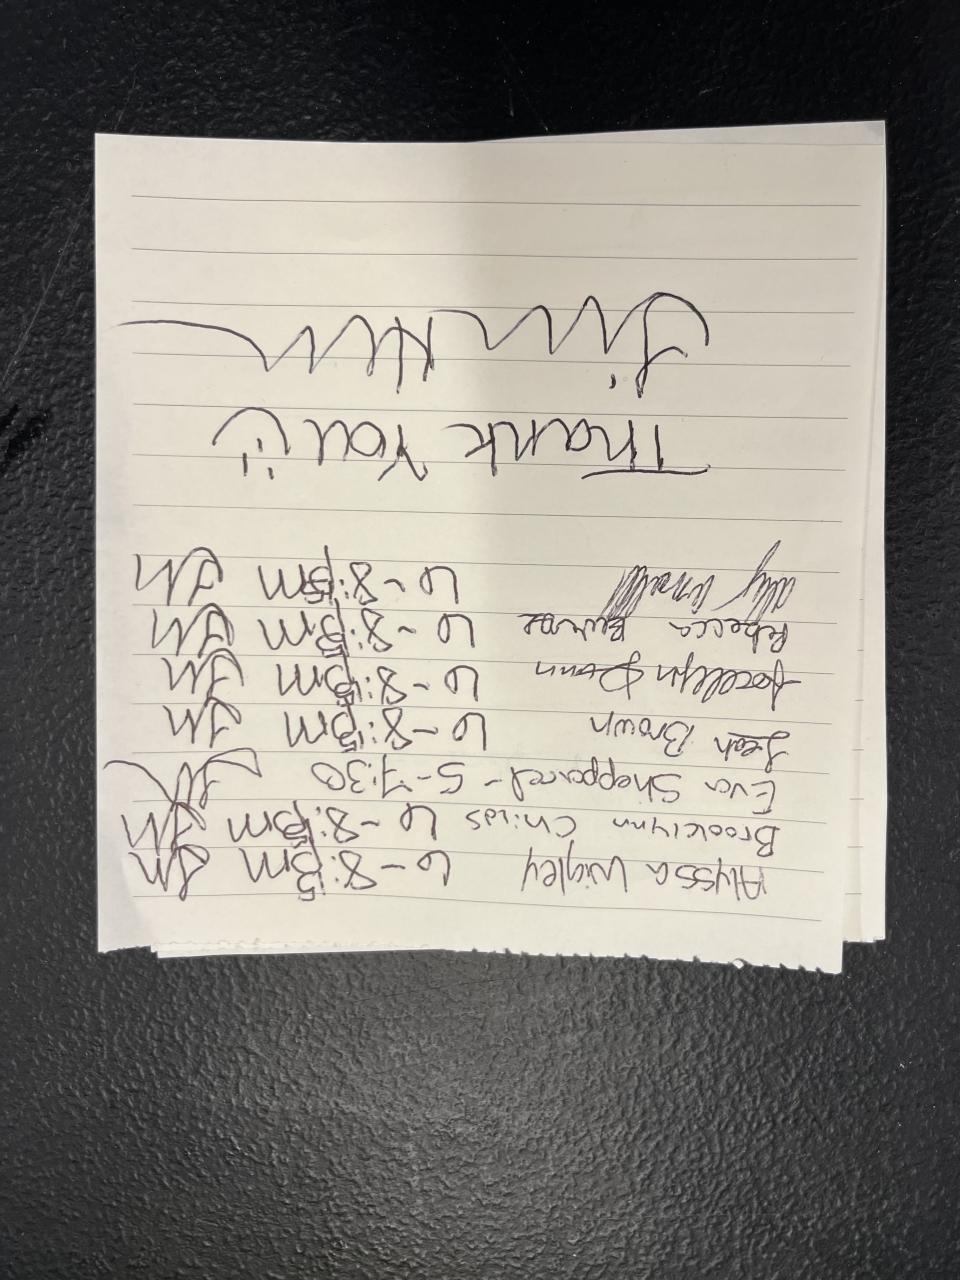 Alyssa Wigley 6-8:15pm JM
Brooklynn Childs 6-8:15pm JM
Eva Sheppard - 5-7:30 JM
Leah Brown 6-8:15pm JM
Jocelyn 6-8:15pm JM
Rebecca 6-8:15pm JM
Ally 6-8:15pm JM
Thank You :)